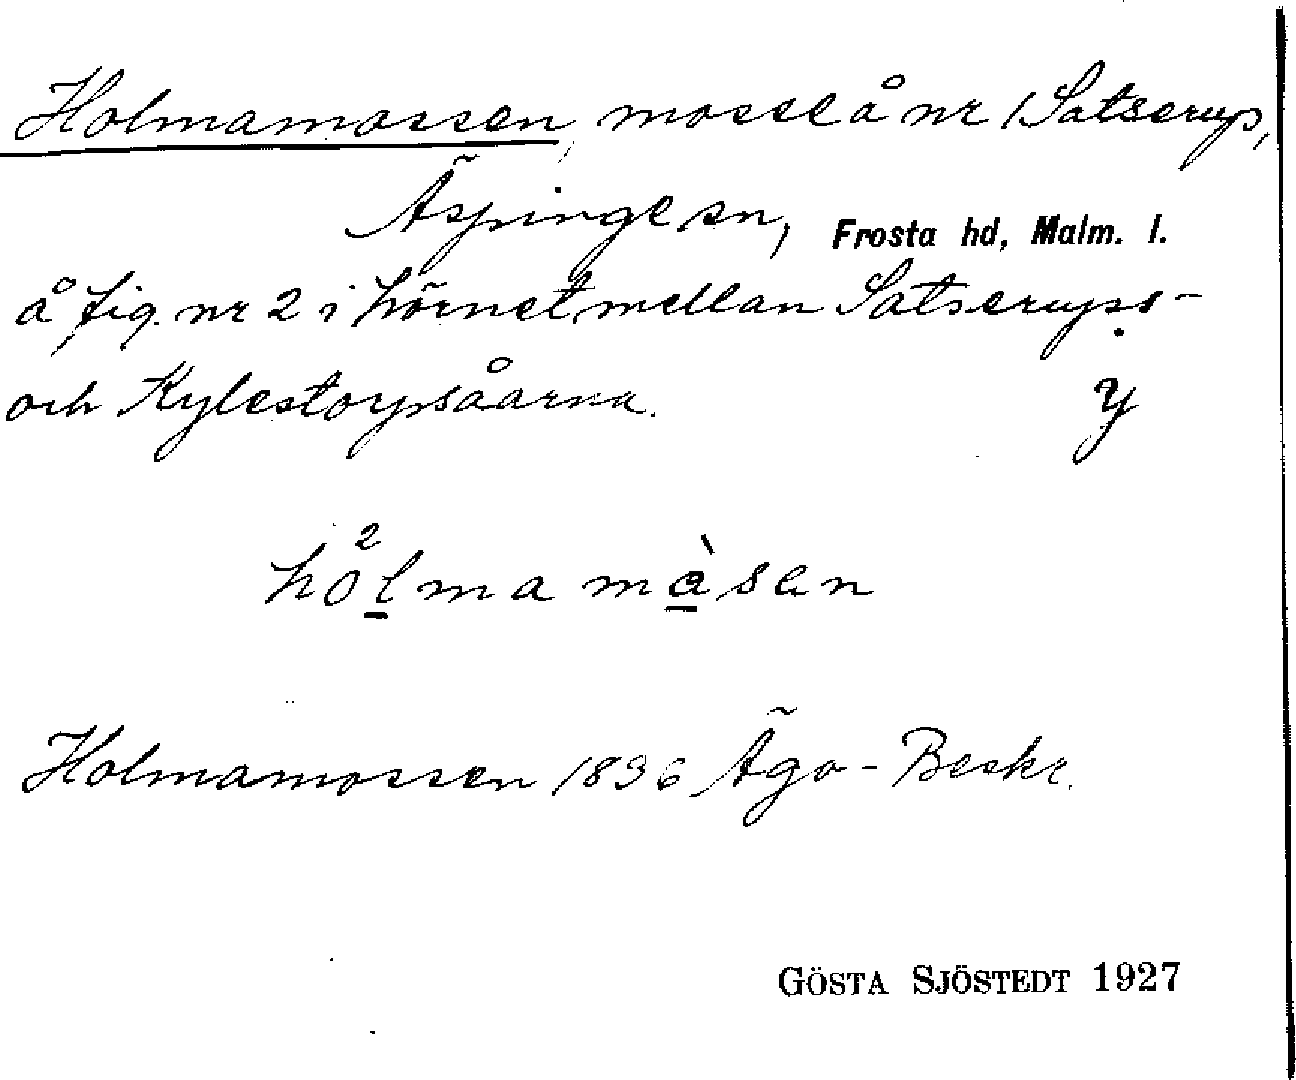 Holmamossen, mosse å nr 1 Satserup,
Äspinge sn, Frosta hd, Malm. l.
å fig. nr 2 i hörnet mellan Satserups-
och Kylestorpsåarna. y
hò²lma màsen
Holmamossen 1836 Ägo-Beskr.
GÖSTA SJÖSTEDT 1927